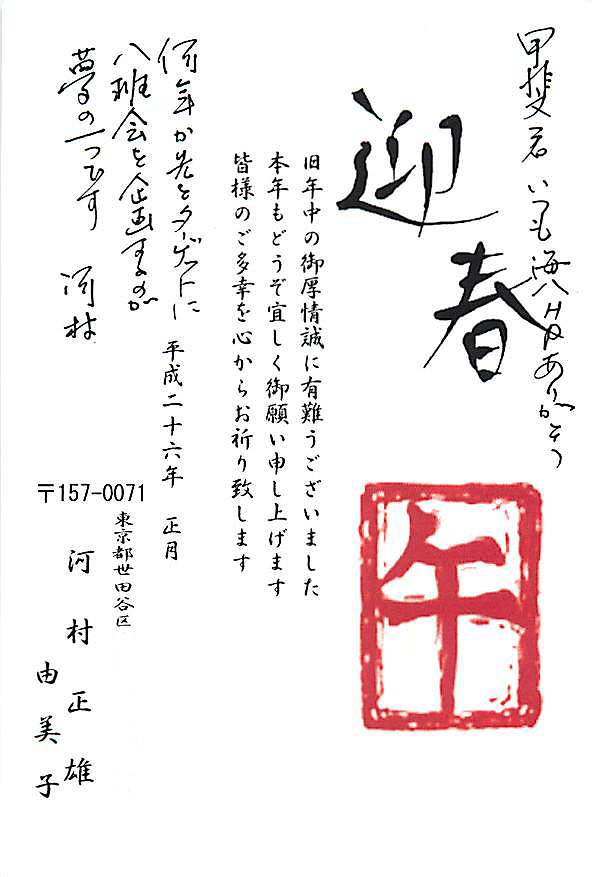 甲斐君 いつも海八 ありがとう
迎春
旧年中の御厚情誠に有難うございました
本年もどうぞ宜しく御願い申し上げます
皆様のご多幸を心からお祈り致します
平成二十六年 正月
何年か先をターゲットに
八班会を企画するのが
夢の一つです 河村
午
〒157-0071
東京都世田谷区
河村正雄
由美子